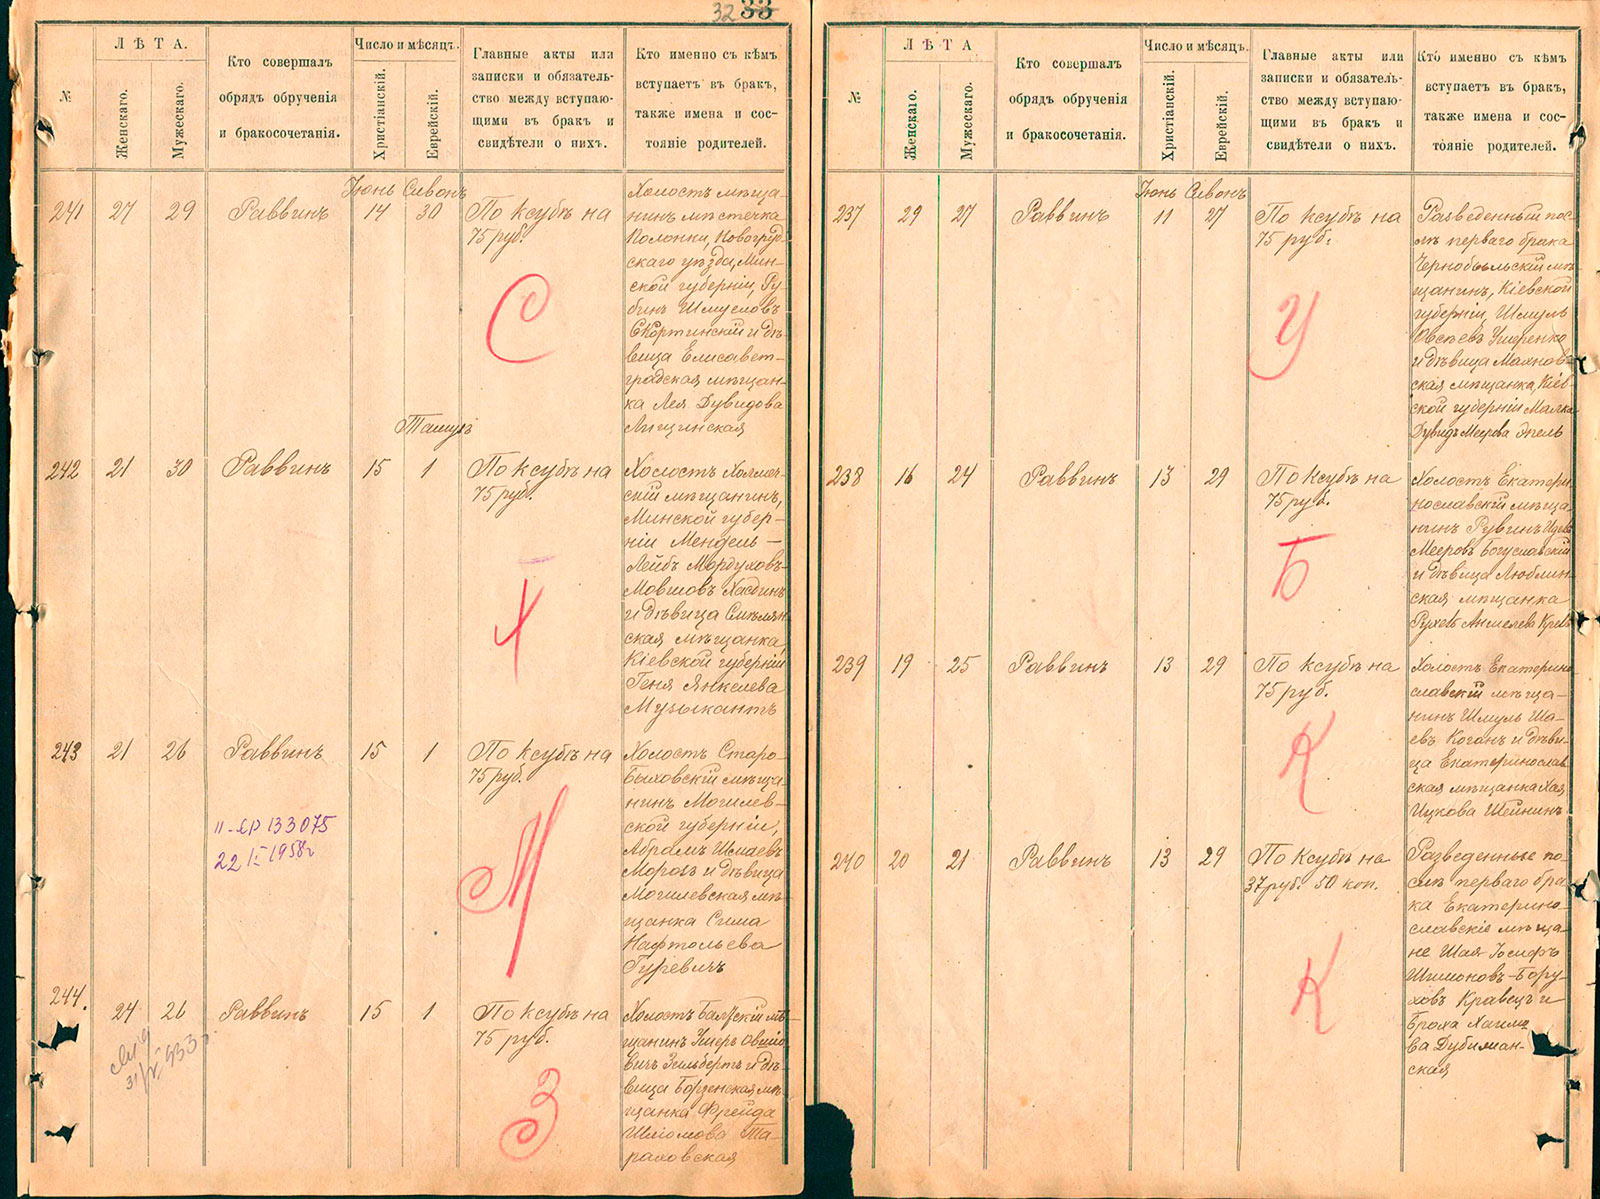 32 33
№
ЛѢТА.
Женскаго.
Мужескаго.
Кто совершалъ
обрядъ обрученія
и бракосочетанія.
Число и мѣсяцъ.
Христіанскій.
Еврейскій.
Главные акты или
записки и обязатель-
ство между вступаю-
щими въ бракъ и
свидѣтели о нихъ.
Кто именно съ кѣмъ
вступаетъ въ бракъ,
также имена и сос-
тояніе родителей.
Іюнь Сивонъ
241 27 29 Раввинъ 14 30 По ксубѣ на
75 руб.
С
Холостъ мѣща-
нинъ мѣстечка
Полонки, Новогруд-
скаго уѣзда, Мин-
ской губерніи, Ру-
бинъ Шмуеловъ
Скортинскій и дѣ-
вица Елисавет-
градская мѣщан-
ка Лея Дувидова
Лищинская
Тамузъ
242 21 30 Раввинъ 15 1 По ксубѣ на
75 руб.
Х
скій мѣщанинъ,
Минской губер-
ніи Мендель-
Лейбъ Мордуховъ-
Мовшовъ Хасдинъ
и дѣвица Смѣлян
ская мѣщанка,
Кіевской губерніи
Геня Янкелева
Музыкантъ
243 21 26 Раввинъ 15 1 По ксубѣ на
75 руб.
М
Холостъ Старо-
Быховскій мѣща-
нинъ Могилев-
ской губерніи,
Абрамъ Шмаевъ
Морозъ и дѣвица
Могилевская мѣ-
щанка Сима
Нафтольева
Гуревичъ
133075
22 1958г
244. 24 26 Раввинъ 15 1 По ксубѣ на
75 руб.
З
Холостъ Балтскій мѣ-
щанинъ Умеръ
вичъ Зильбертъ и дѣ-
вица Борзенская мѣ-
щанка Фрейда
Шліомова Та-
раховская
№
ЛѢТА
Женскаго.
Мужескаго.
Кто совершалъ
обрядъ обрученія
и бракосочетанія.
Число и мѣсяцъ.
Христіанскій.
Еврейскій.
Главные акты или
записки и обязатель-
ство между вступаю-
щими въ бракъ и
свидѣтели о нихъ.
Кто именно съ кѣмъ
вступаетъ въ бракъ,
также имена и сос-
тояніе родителей.
Іюнь Сивонъ
237 29 27 Раввинъ 11 27 По ксубѣ на
75 руб.
У
Разведенный пос-
лѣ перваго брака
Чернобыльскій мѣ-
щанинъ, Кіевской
губерніи, Шмуль
Овсѣевъ Умеренко
и дѣвица Махнов-
ская мѣщанка, Кіев-
ской губерніи Малка
Дувидъ Меерова Эпель
238 16 24 Раввинъ 13 29 По ксубѣ на
75 руб.
Б
Холостъ Екатери
нославскій мѣща-
нинъ Рувинъ
Мееровъ Богуславскій
и дѣвица Люблин-
ская мѣщанка
Рухля Аншелева
239 19 25 Раввинъ 13 29 По ксубѣ на
75 руб.
К
Холостъ Екатерино
славскій мѣща-
нинъ Шмуль Ша-
евъ Коганъ и дѣви-
ца Екатеринослав-
ская мѣщанка Хая
Ицкова Шейнинъ
240 20 21 Раввинъ 13 29 По ксубѣ на
37 руб. 50 коп.
К
Разведенные по-
слѣ перваго бра-
ка Екатерино-
славскіе мѣща-
не Шая Іосифъ
Шимоновъ-Бору-
ховъ Кравецъ и
Броха Хаимо
ва Дубиман-
ская